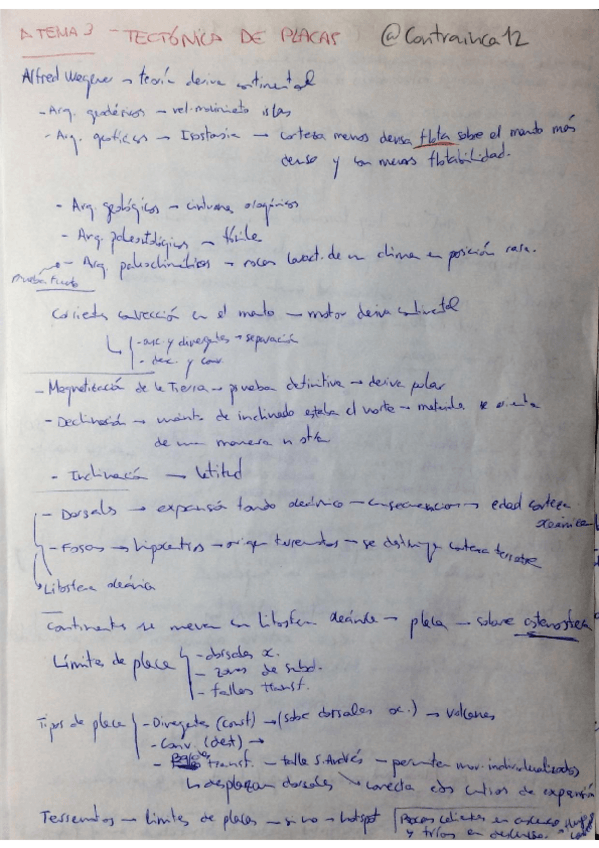 TEMA 3 - TECTÓNICA DE PLACAS @Contrainca12
Alfred Wegener → teoría deriva continental
- Arg. geodésicos → vel. movimiento islas
- Arg. geofísicos → Isostasia → corteza menos densa flota sobre el manto más
denso y con menos flotabilidad.
- Arg. geológicos → cinturones orogénicos
- Arg. paleontológicos → fósiles
- Arg. paleoclimáticos → rocas caract. de un clima en posición rara.
Corrientes convección en el manto → motor deriva continental
- asc. y divergentes → separación
- desc. y conv.
- Magnetización de la Tierra → prueba definitiva → deriva polar
- Declinación → cuánto de inclinado estaba el norte → materiales se orienta
de una manera u otra
- Inclinación → latitud
- Dorsales → expansión fondo oceánico → consecuencia → edad corteza
oceánica
- Fosas → hipocentros → origen terremotos → se destruye corteza terrestre
Litosfera oceánica
Continentes se mueven con litosfera oceánica → placa → sobre astenosfera
Límites de placa - dorsales o.
- zonas de subd.
- fallas transf.
Tipos de placa - Divergentes (const) → (sobre dorsales oc.) → volcanes
- Conv. (dest) →
- transf. → falla S. Andrés → permiten mov. individualizados
↳ desplazan dorsales conecta dos centros de expansión
Terremotos → límites de placas → si no → hotspot Rocas calientes en ascenso
y frías en descenso.